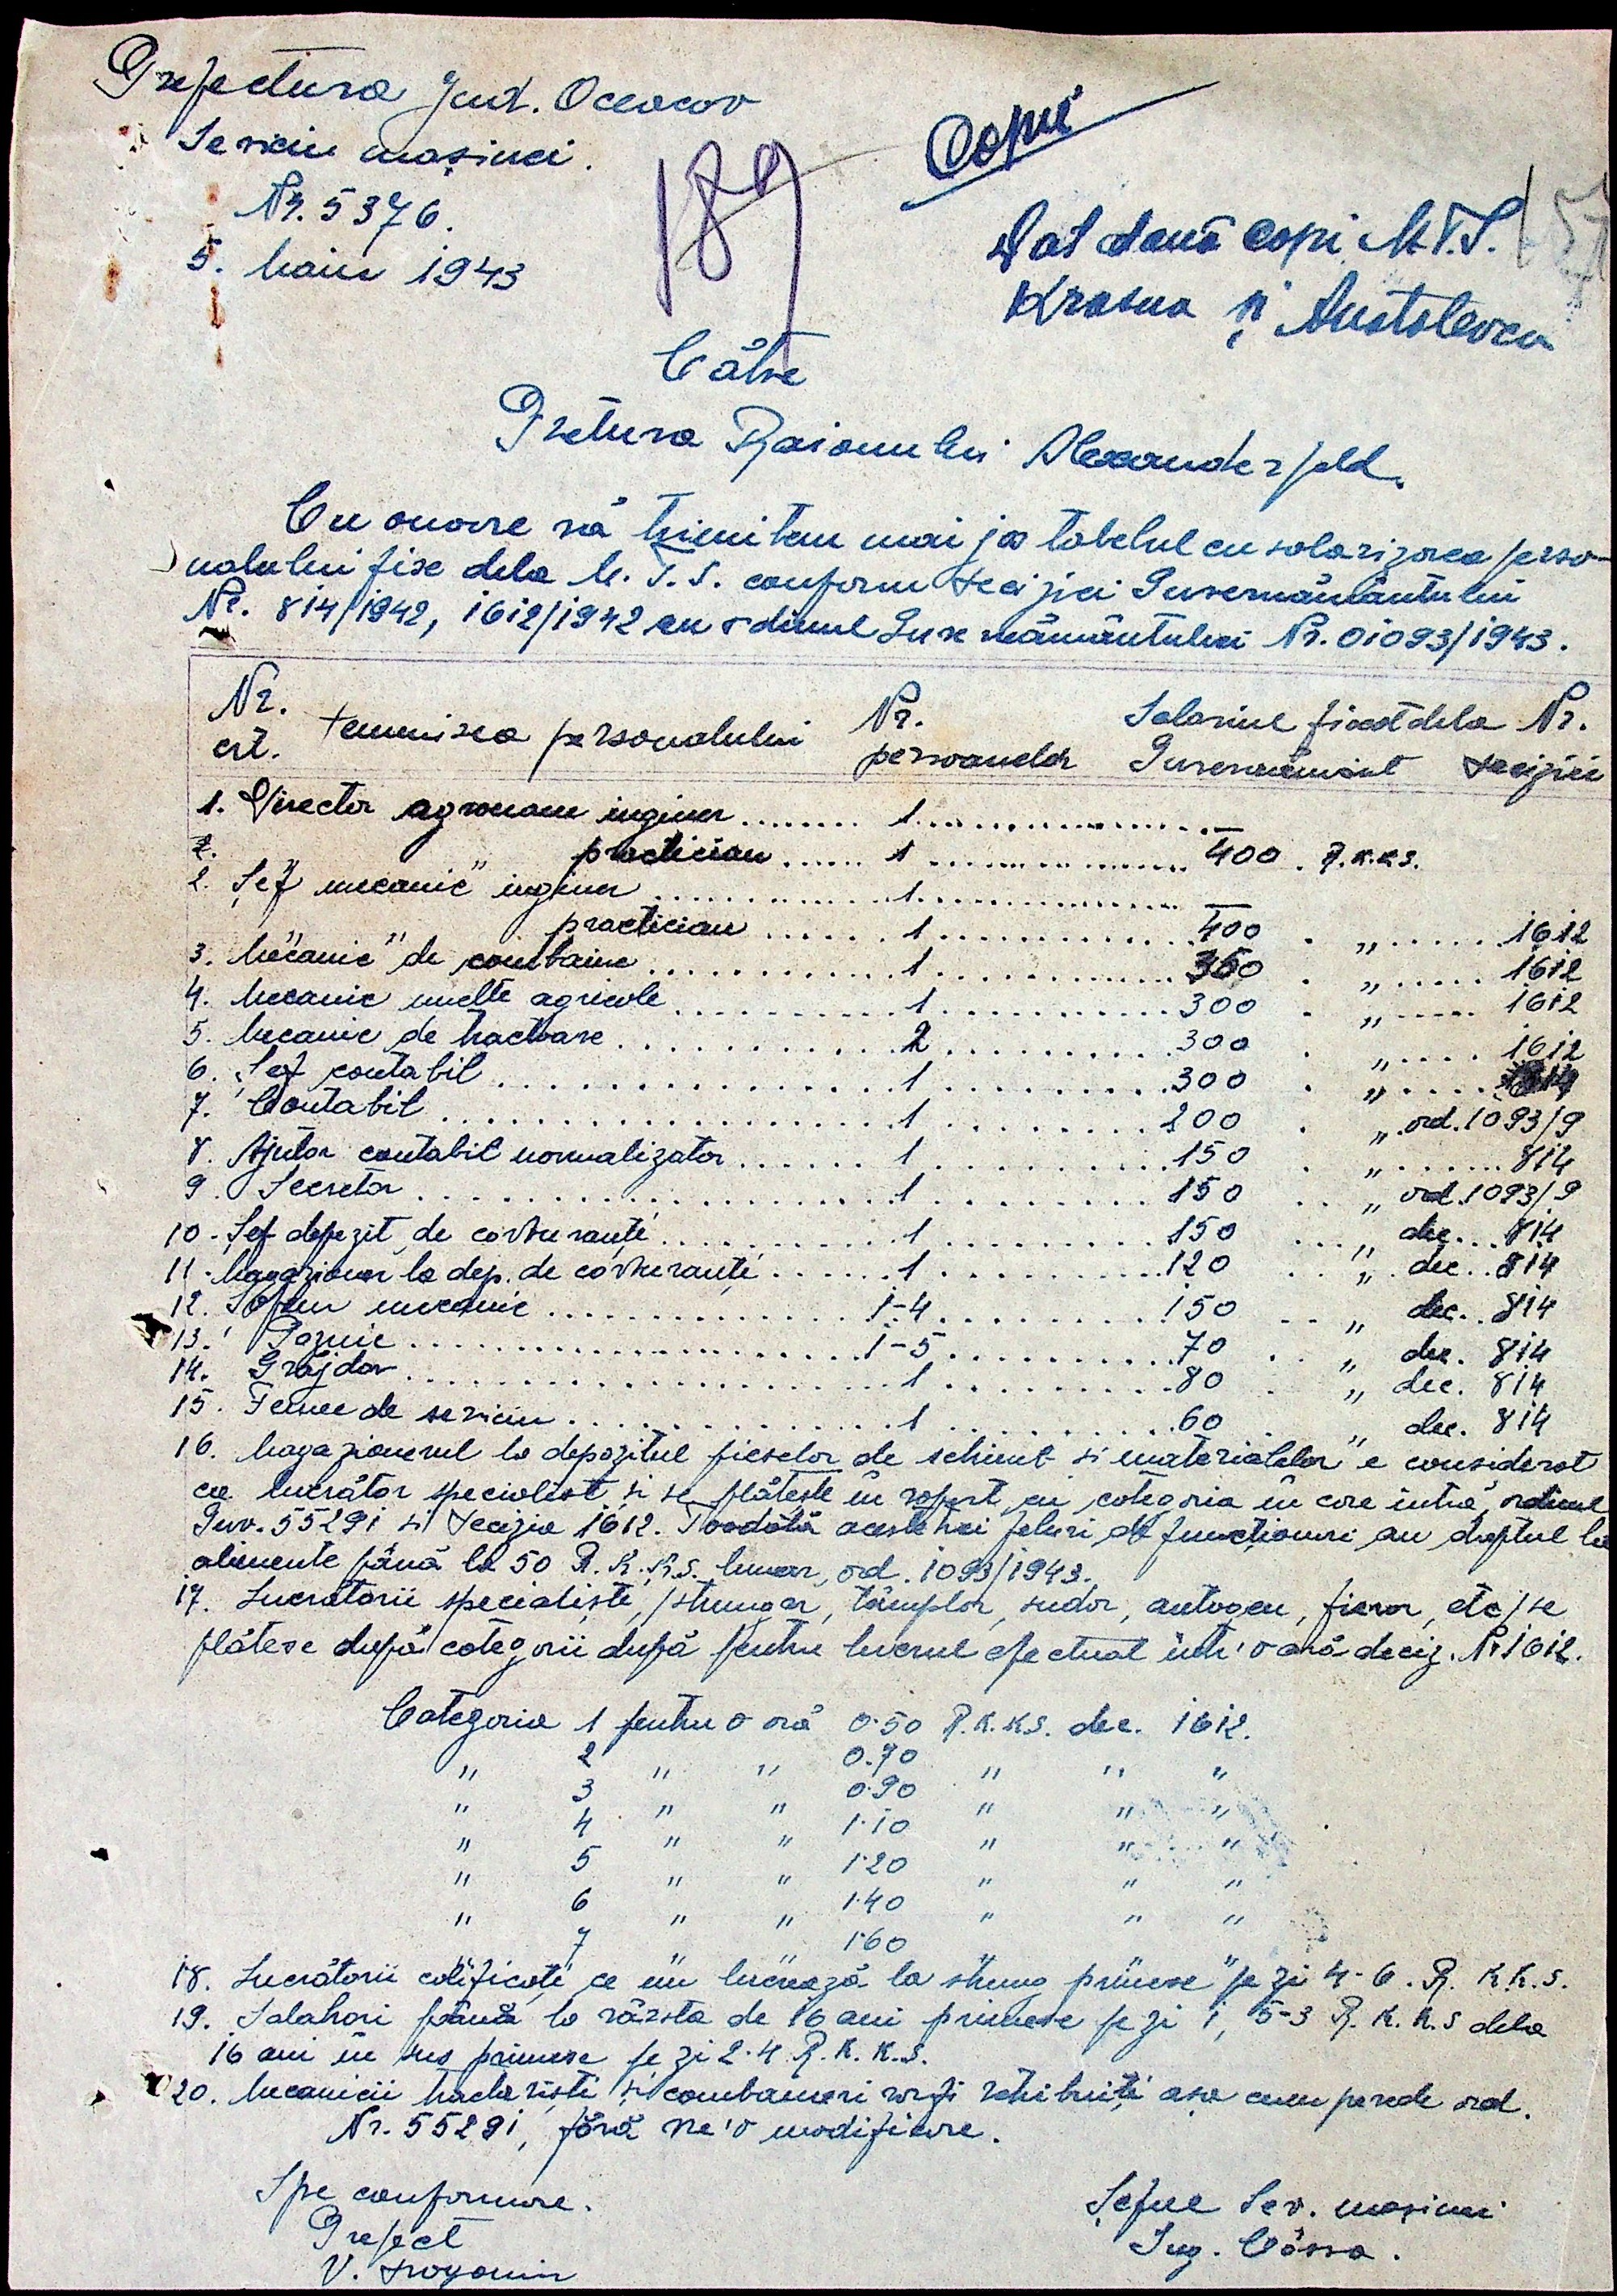 Prefectura Jud. Oceacov
Serviciu mașinei.
Nr. 5376.
5. Maiu 1943
189
Copie
Dat două copi M.T.S.
Krasna și Anatolevca
Către
Pretura Raionului Alexanderfeld.
Cu onoare vă trimitem mai jos tabelul cu salarizarea perso-
nalului fixe dela M.T.S. conform deciziei Guvernământului
Nr. 814/1942, 1612/1942 cu ordinul Guvernământului Nr. 01093/1943.
Nr. crt. Denumirea personalului Nr. persoanelor Salariul fixat dela Guvernământ Nr. deciziei
1. Director agronom inginer ........ 1 ................ —
" practician ...... 1 ................ 400 . R.K.K.S.
2. Șef mecanic inginer ................ 1 ................ —
" " practician ...... 1 ............ 400 . „ ..... 1612
3. Mecanic de combaine ............ 1 ............ 350 . „ ..... 1612
4. Mecanic unelte agricole ............ 1 ............ 300 . „ ..... 1612
5. Mecanic de tractoare ............ 2 ............ 300 . „ .... 1612
6. Șef contabil ................ 1 ............ 300 . „ ..... 814
7. Contabil ................ 1 ............ 200 . „ ord. 1093/9
8. Ajutor contabil normalizator ...... 1 ............ 150 . „ ....... 814
9. Secretar ................ 1 ............ 150 .. „ ord. 1093/9
10. Șef depozit de carburanți ............ 1 ............ 150 ... „ dec... 814
11. Magazioner la dep. de carburanți ...... 1 ............ 120 .. „ dec.. 814
12. Șofeur mecanic ................ 1-4 ............ 150 .. „ dec.. 814
13. Paznic ................ 1-5 ............ 70 . „ dec. 814
14. Grăjdar ................ 1 ............ 80 . „ dec. 814
15. Femee de serviciu ................ 1 ............ 60 . „ dec. 814
16. Magazionerul la depozitul pieselor de schimb și materialelor e considerat
ca lucrător specialist și se plătește în raport cu categoria în care intră, ordinul
Guv. 55291 și decizia 1612. Toodată aceste trei feluri de funcționari au dreptul la
alimente până la 50 R.K.K.S. lunar, ord. 1093/1943.
17. Lucrătorii specialiști, /strungar, tâmplar, sudor, autogen, fierar, etc/ se
plătesc după categorii după pentru lucrul efectuat într'o oră deciz. Nr 1612.
Categoria 1 pentru o oră 0.50 R.K.K.S. dec. 1612.
„ 2 „ „ 0.70 „ „ „
„ 3 „ „ 0.90 „ „ „
„ 4 „ „ 1.10 „ „ „
„ 5 „ „ 1.20 „ „ „
„ 6 „ „ 1.40 „ „ „
„ 7 „ „ 1.60 „ „ „
18. Lucrătorii calificați ce nu lucrează la strung primesc pe zi 4-6. R.K.K.S.
19. Salahori până la vârsta de 16 ani primesc pe zi 1,5-3 R.K.K.S dela
16 ani în sus primesc pe zi 2.4 R.K.K.S.
20. Mecanicii tractoriști și combaineri vor fi retribuiți așa cum prevede ord.
Nr. 55291, fără vre'o modificare.
Spe conformare.
Prefect
V.
Șeful Serv. mașinei
Ing.